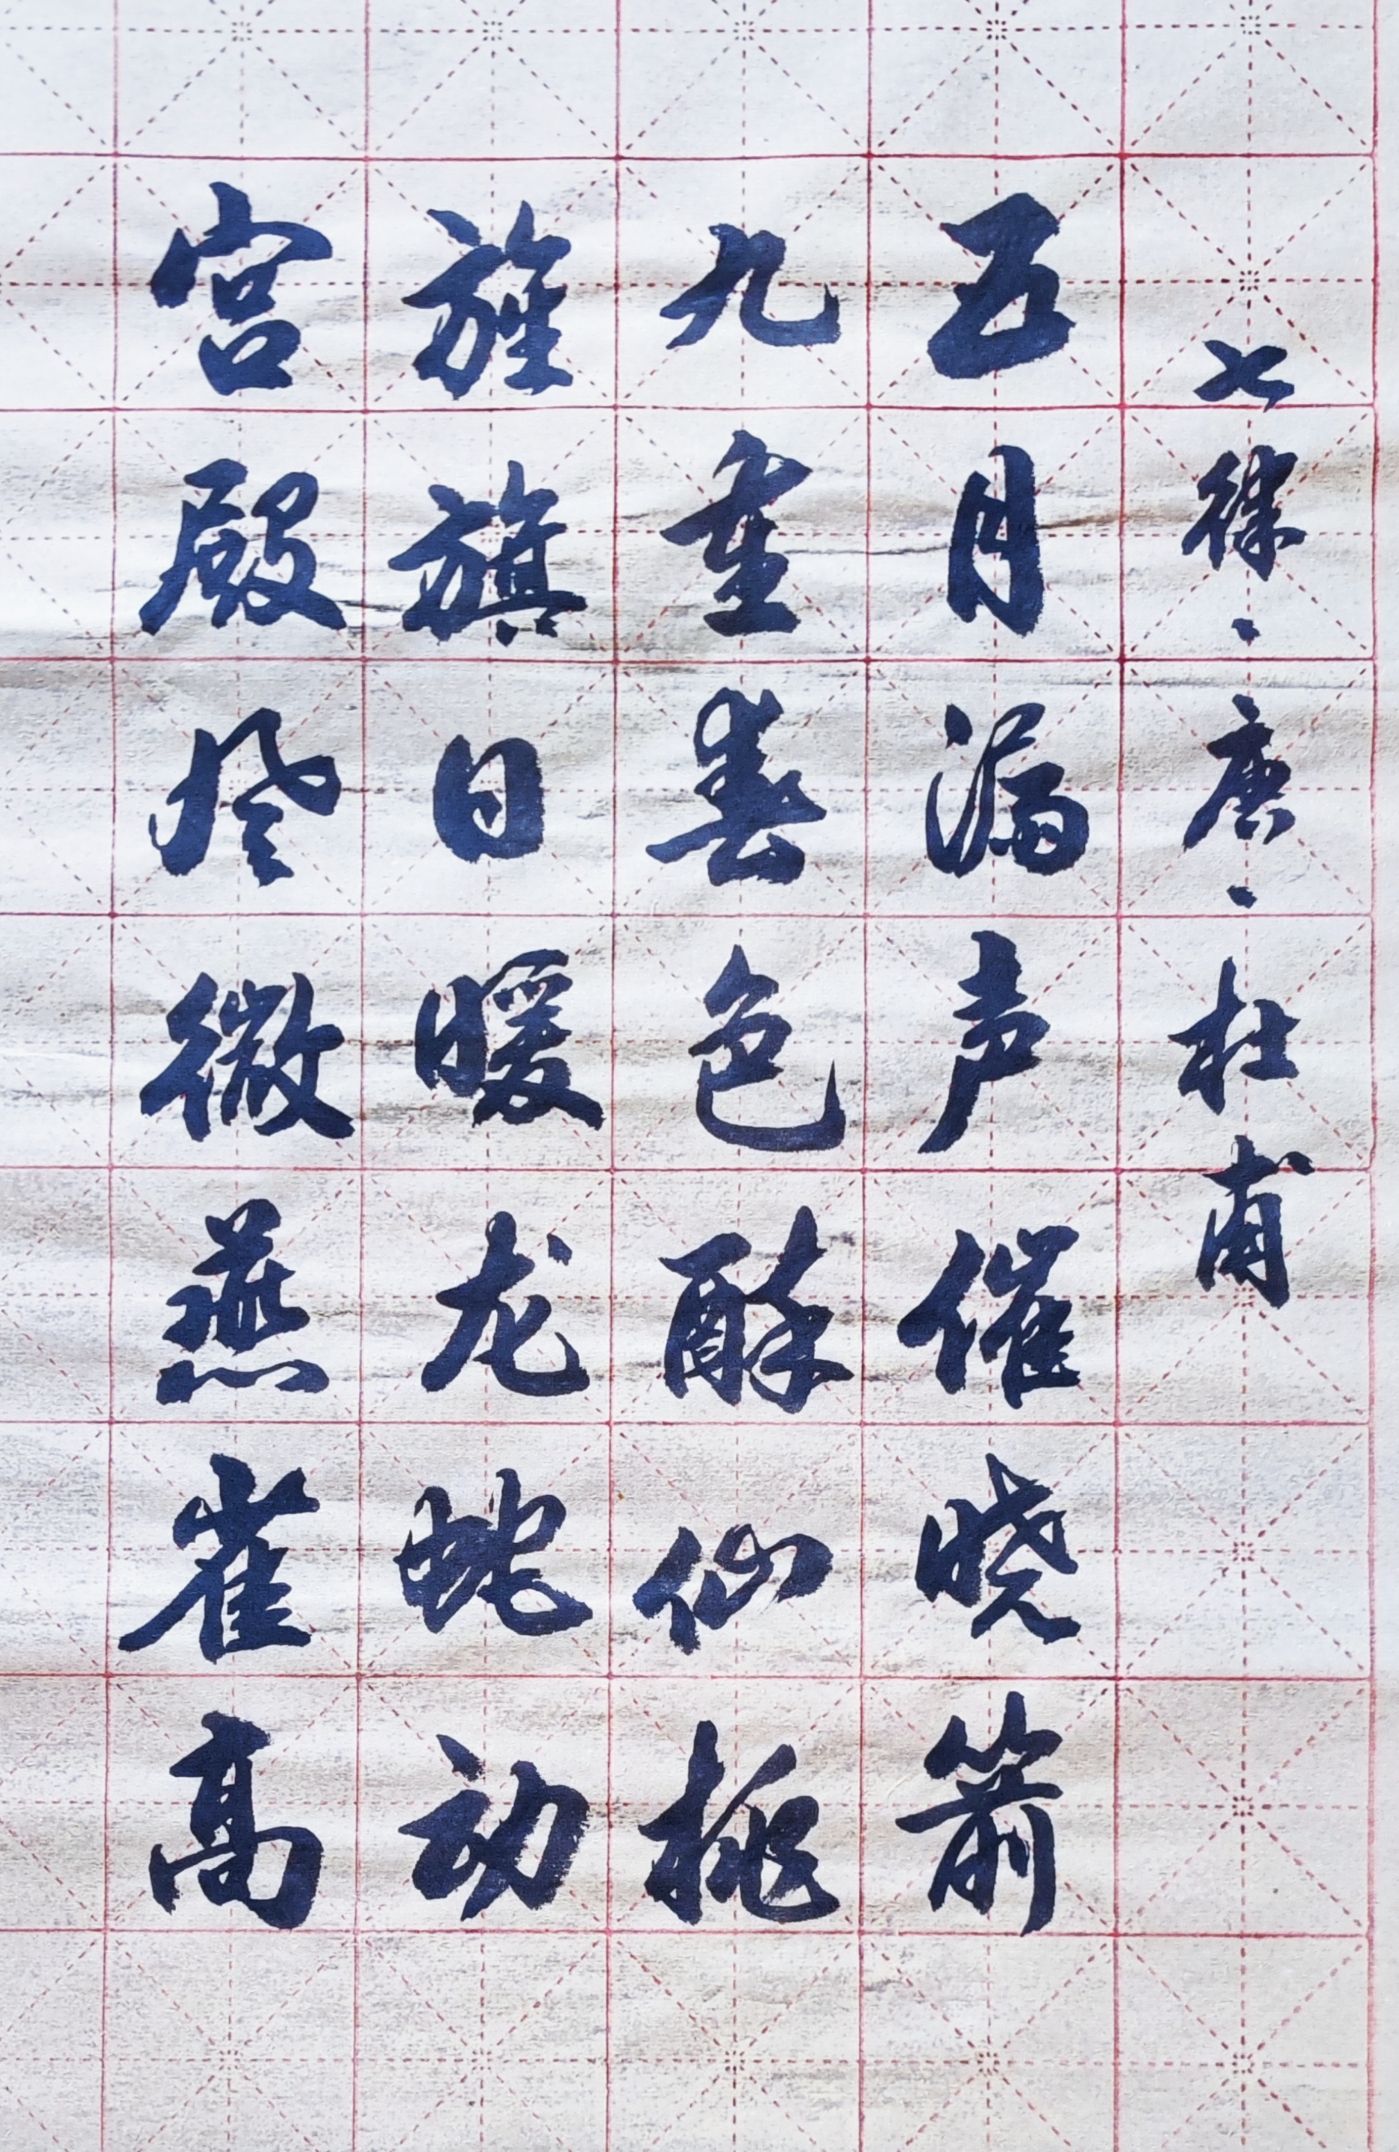 七律·唐·杜甫
五月漏声催晓箭
九重春色醉仙桃
旌旗日暖龙蛇动
宫殿风微燕雀高